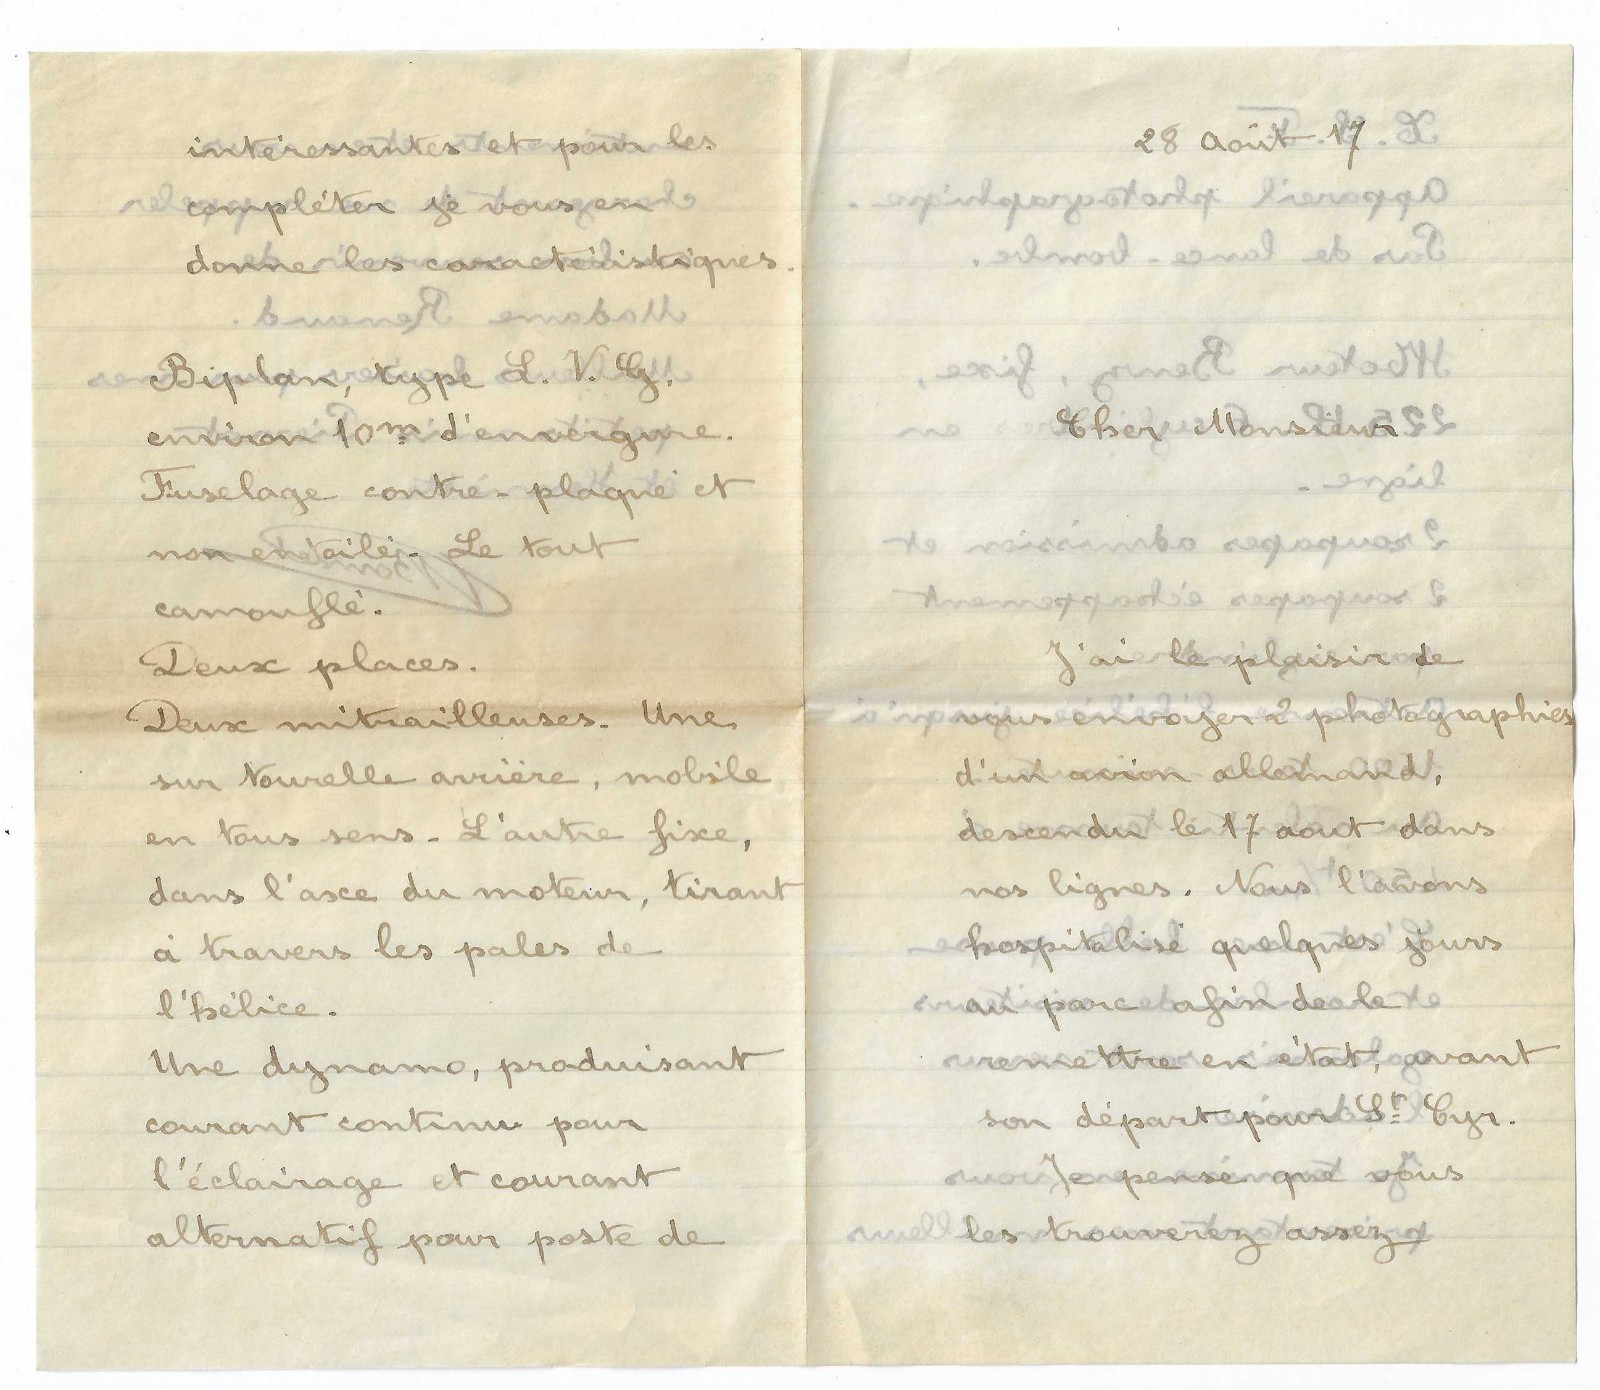 28 Août. 17
Cher Monsieur
J'ai le plaisir de
vous envoyer 2 photographies
d'un avion allemand,
descendu le 17 aout dans
nos lignes. Nous l'avons
hospitalisé quelques jours
au parc afin de le
remettre en état, avant
son départ pour St Cyr.
Je pense que vous
les trouverez assez
intéressantes et pour les
compléter je vous en
donne les caractéristiques.
Biplan, type L. V. G.
environ 10m d'envergure.
Fuselage contre-plaqué et
non entoilé. Le tout
camouflé.
Deux places.
Deux mitrailleuses. Une
sur tourelle arrière, mobile
en tous sens - L'autre fixe,
dans l'axe du moteur, tirant
à travers les pales de
l'hélice.
Une dynamo, produisant
courant continu pour
l'éclairage et courant
alternatif pour poste de